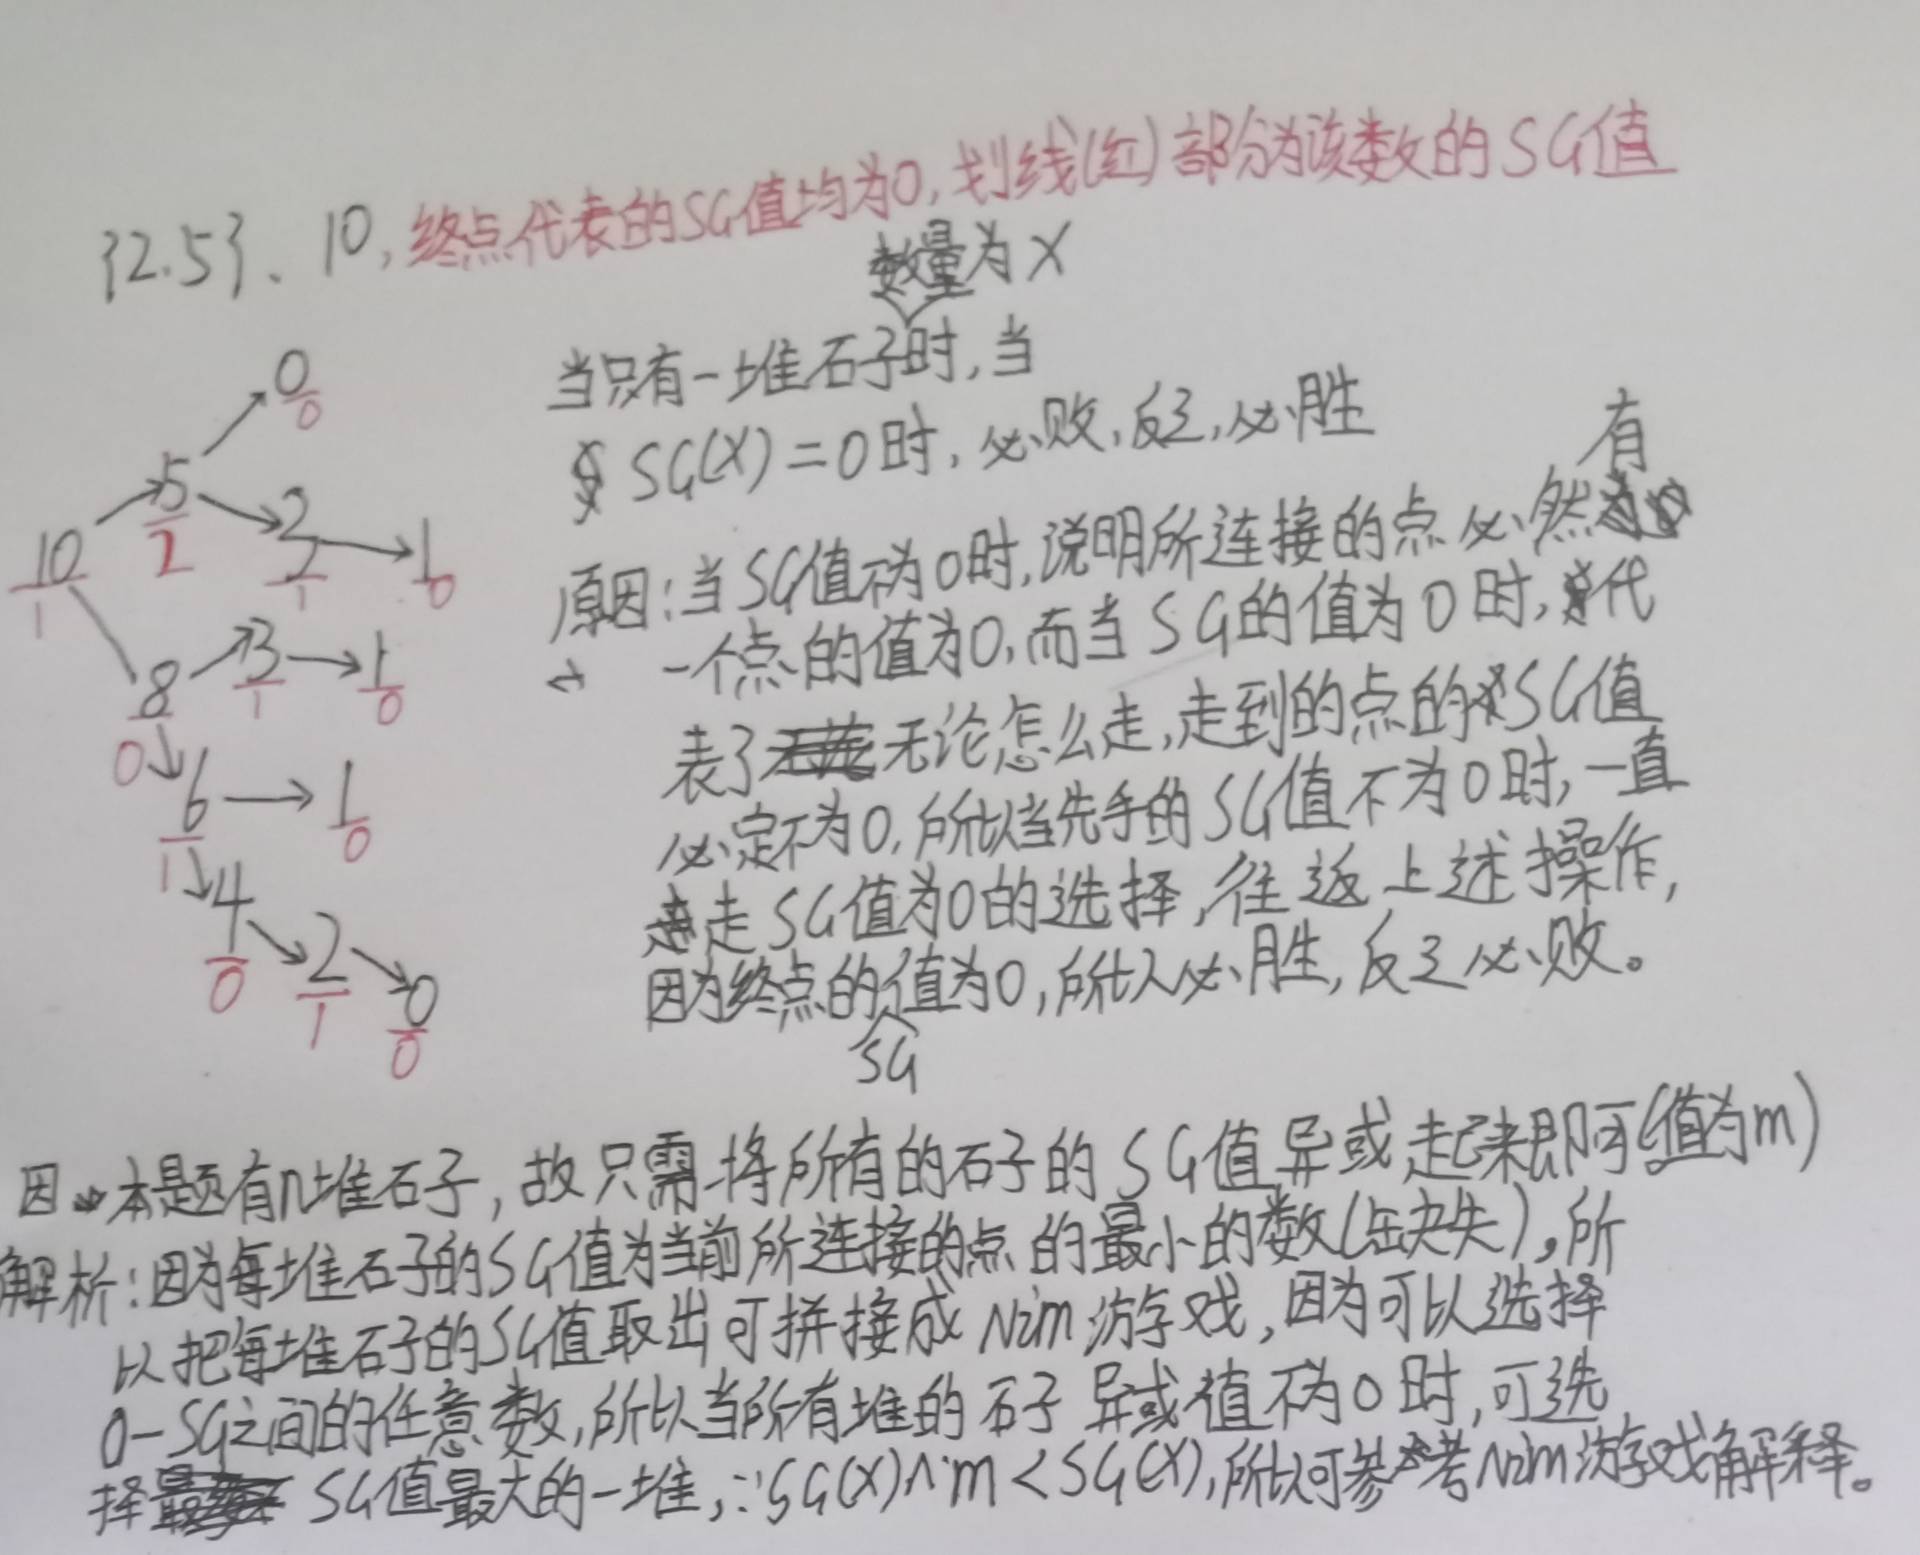 {2.5}、10,终点代表的SG值均为0,划线(红)部分为该数的SG值
数量为X
当只有一堆石子时,当
SG(X)=0时,必败,反之,必胜
有
原因:当SG值不为0时,说明所连接的点必然
一个点的值为0,而当SG的值为0时,代
表了无论怎么走,走到的点的SG值
必定不为0,所以当先手的SG值不为0时,一直
走SG值为0的选择,往返上述操作,
因为终点的值为0,所以必胜,反之必败。
SG
0
0
5
2
2
1
1
0
10
1
8
0
3
1
1
0
6
1
1
0
4
0
2
1
0
0
因本题有n堆石子,故只需将所有的石子的SG值异或起来即可(值为m)
解析:因为每堆石子的SG值为当前所连接的点的最小的数(缺失),所
以把每堆石子的SG值取出可拼接成Nim游戏,因为可以选择
0-SG之间的任意数,所以当所有堆的石子异或值不为0时,可选
择SG值最大的一堆,∵SG(X)^m<SG(X),所以可参考Nim游戏解释。